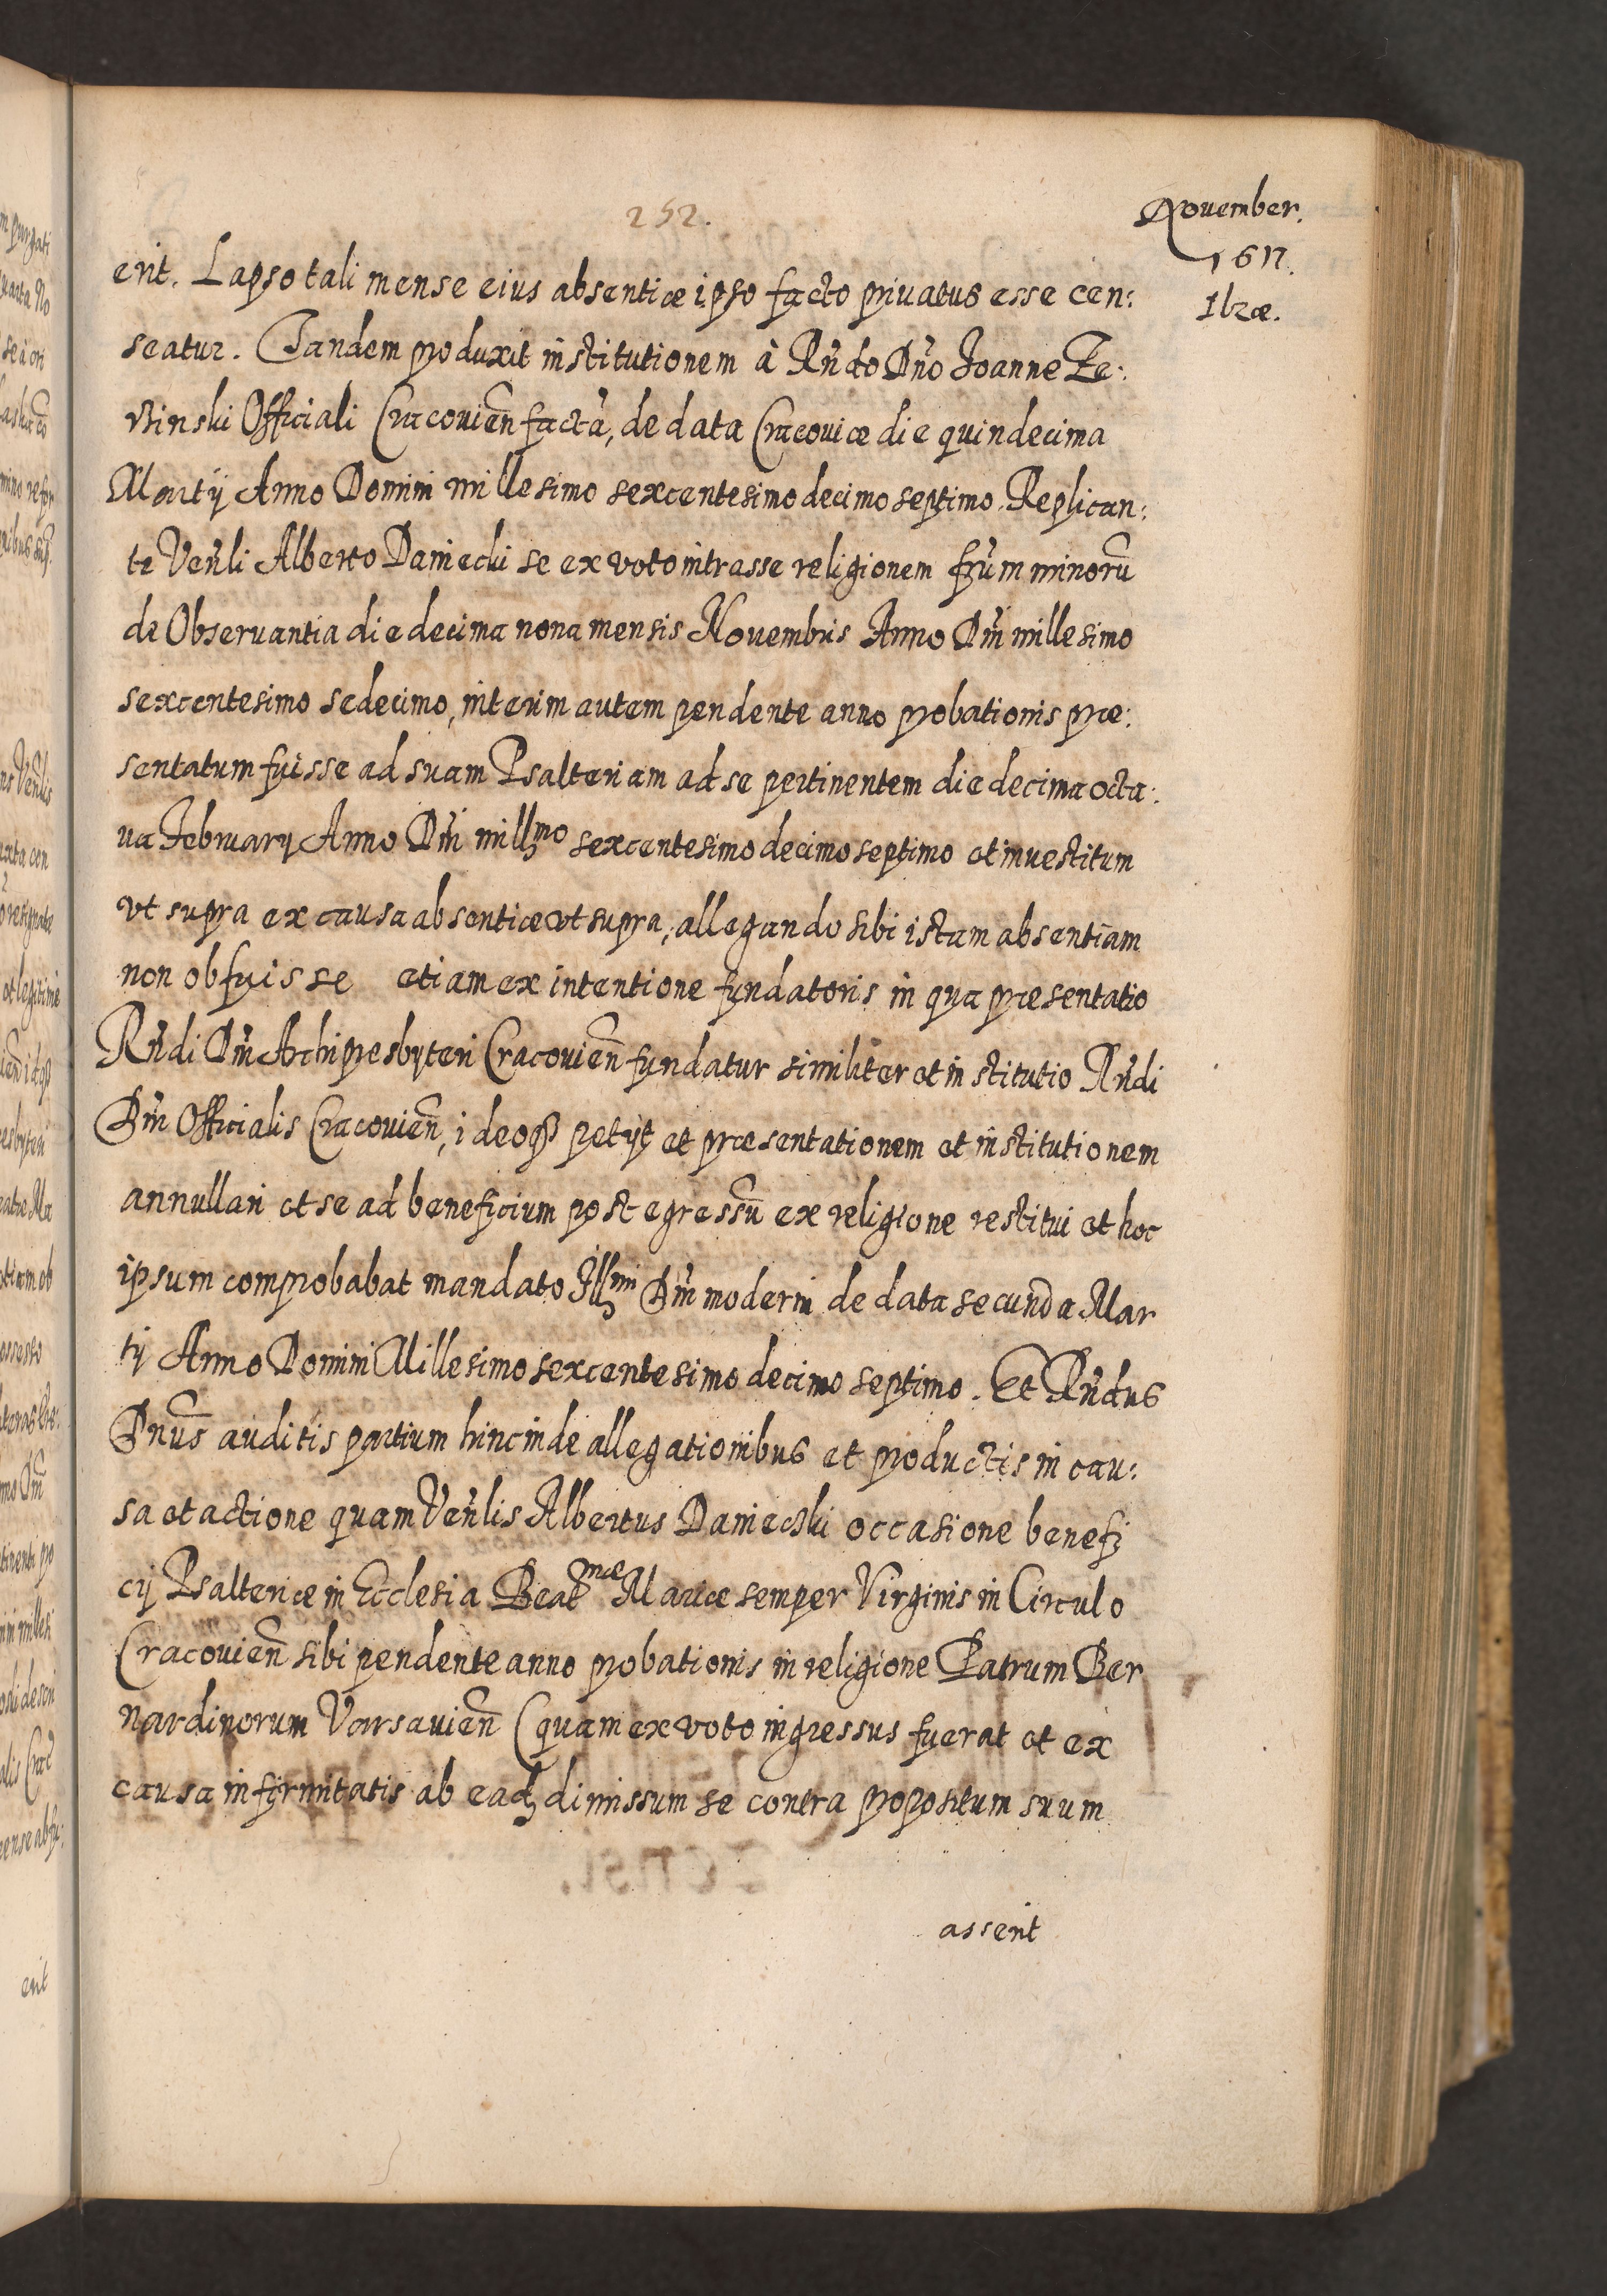 252.
November.
1617.
Ilzæ.
erit. Lapso tali mense eius absentiæ ipso facto privatus esse cen:
seatur. Tandem produxit institutionem à Rñdo Dño Joanne Fe:
Binski Officiali Cracovieñ factã, de data Cracoviæ die quindecima
Martÿ Anno Domini millesimo sexcentesimo decimo septimo. Replican:
te Veñli Alberto Daniecki se ex voto intrasse religionem frũm minorũ
de Observantia die decima nona mensis Novembris Anno Dñi millesimo
sexcentesimo sedecimo, interim autem pendente anno probationis præ:
sentatum fuisse ad suam Psalteriam ad se pertinentem die decima octa:
va February Anno Dñi millmo sexcentesimo decimo septimo et investitum
vt supra ex causa absentiæ vt supra, allegando sibi istam absentiam
non obfuisse etiam ex intentione fundatoris in qua præsentatio
Rñdi Dñi Archipresbyteri Cracovieñ fundatur similiter et institutio Rñdi
Dñi Officialis Cracovieñ, ideoq petÿt et præsentationem et institutionem
annullari et se ad beneficium post egressũ ex religione restitui et hoc
ipsum comprobabat mandato Illmi Dñi moderni de data secunda Mar
tÿ Anno Domini Millesimo sexcentesimo decimo septimo. Et Rñdus
Dnũs auditis partium hincinde allegationibus et productis in cau:
sa et actione quam Veñlis Albertus Daniecki occasione benefi
cÿ Psalteriæ in Ecclesia Beatmæ Mariæ semper Virginis in Circulo
Cracovieñ sibi pendente anno probationis in religione Patrum Ber
nardinorum Varsavieñ (quam ex voto ingressus fuerat et ex
causa infirmitatis ab eadz dimissum se contra propositum suum
asserit